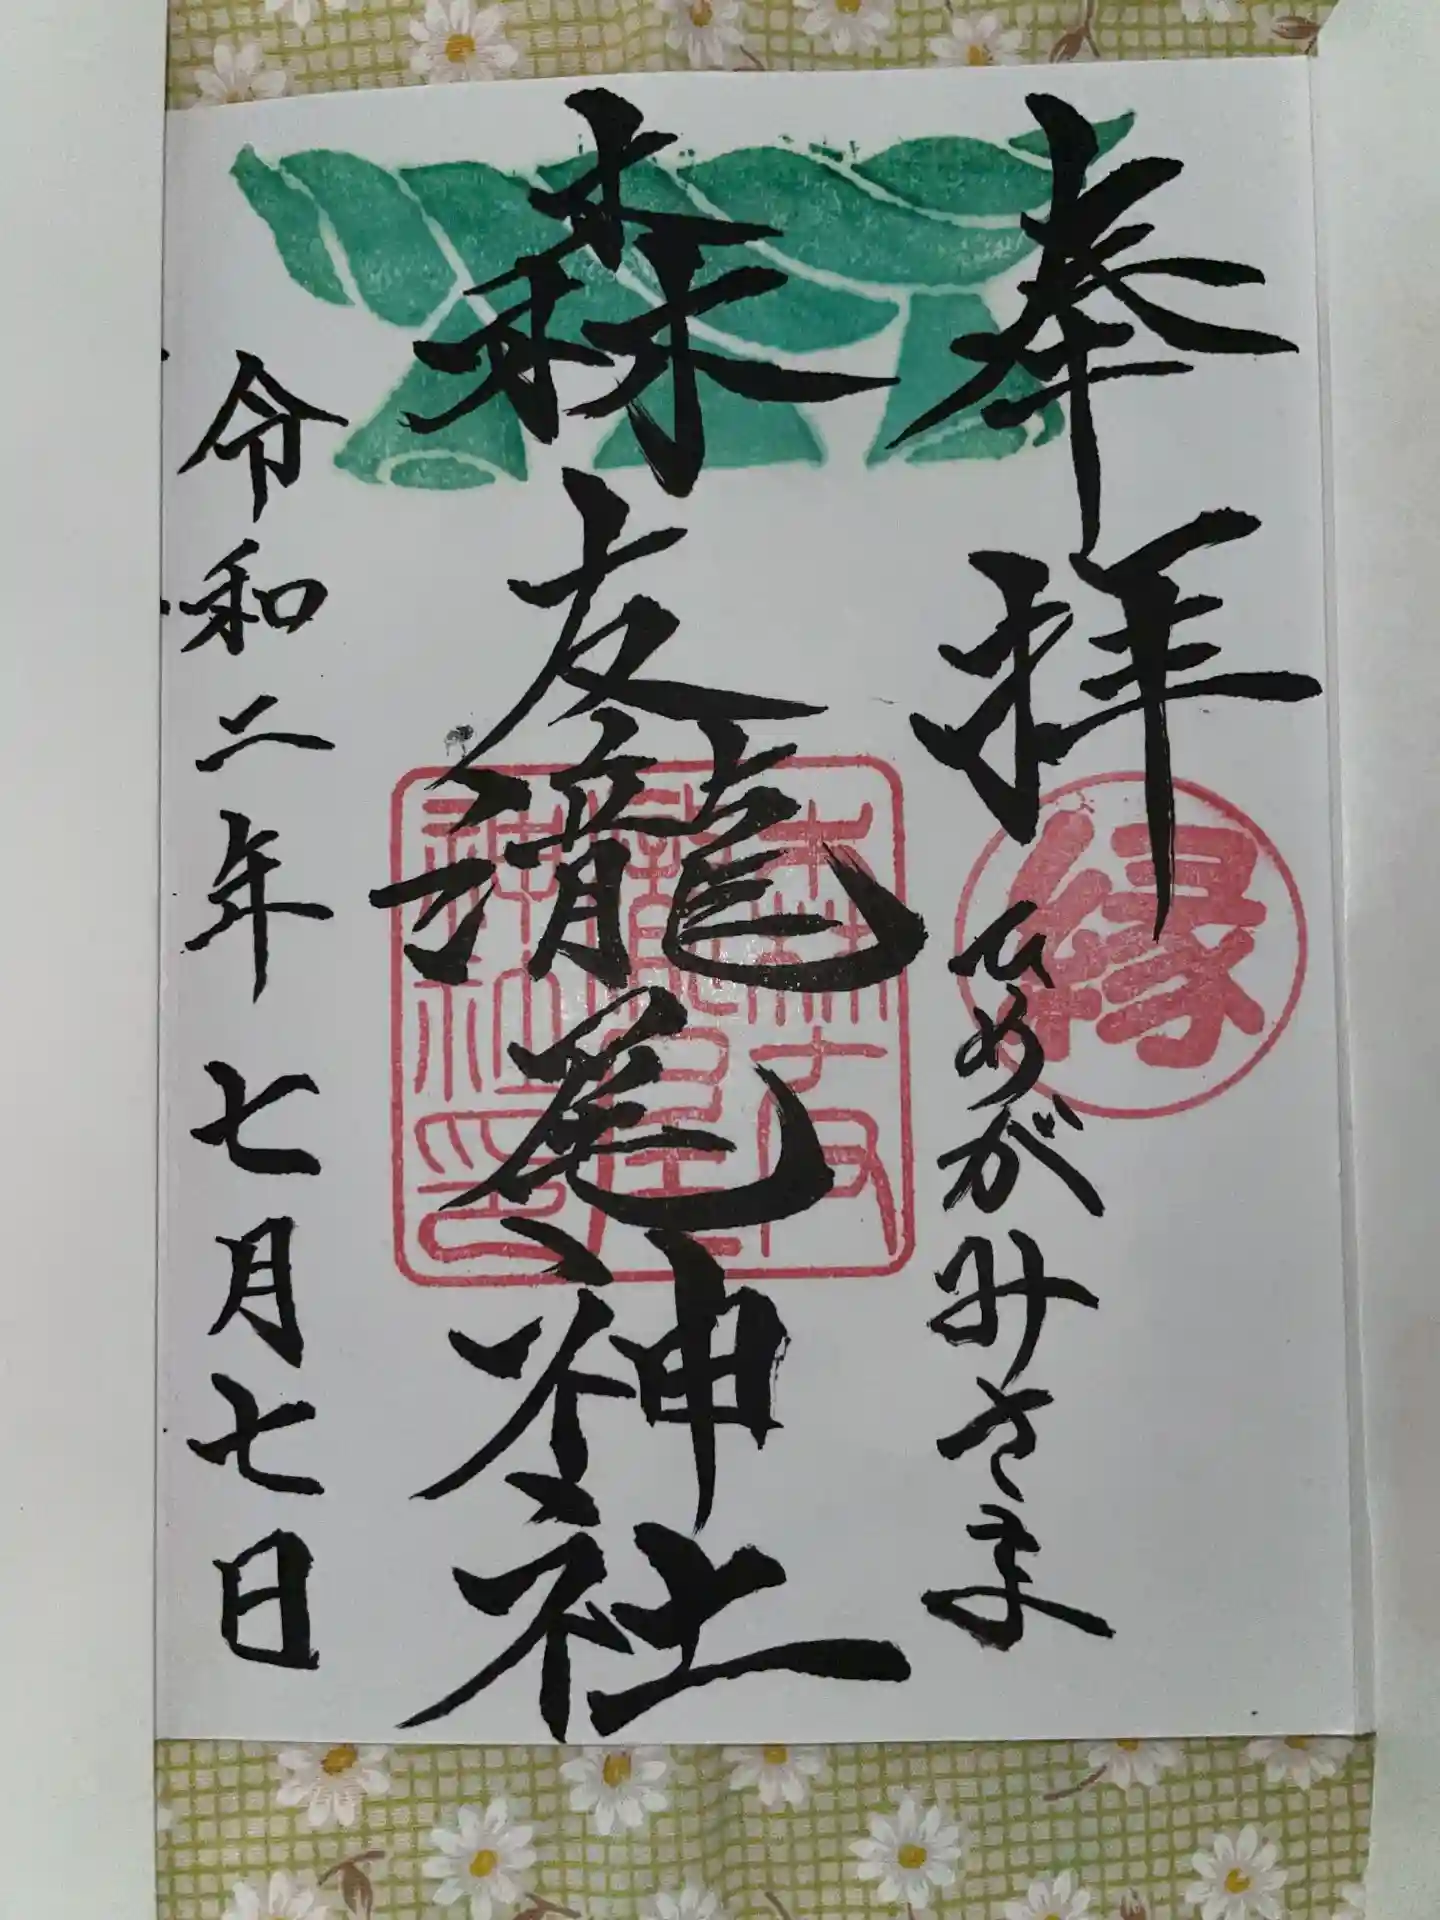 奉拝
縁
ひめがみさま
森友瀧尾神社
森友
瀧尾
神社印
令和二年七月七日